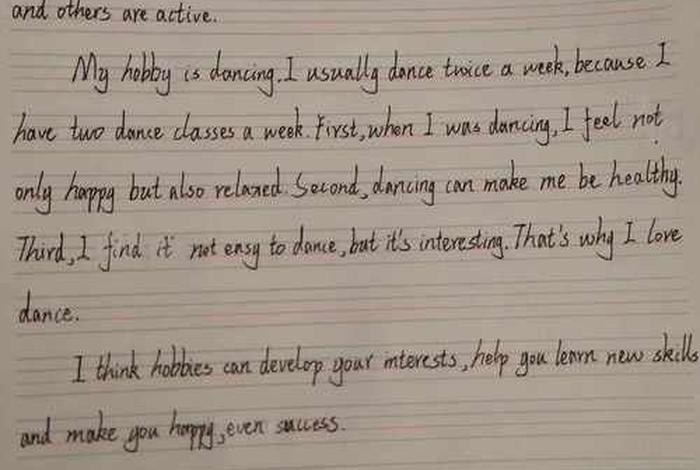 and others are active.
My hobby is dancing. I usually dance twice a week, because I
have two dance classes a week. First, when I was dancing, I feel not
only happy but also relaxed. Second, dancing can make me be healthy.
Third, I find it not easy to dance, but it's interesting. That's why I love
dance.
I think hobbies can develop your interests, help you learn new skills
and make you happy, even success.